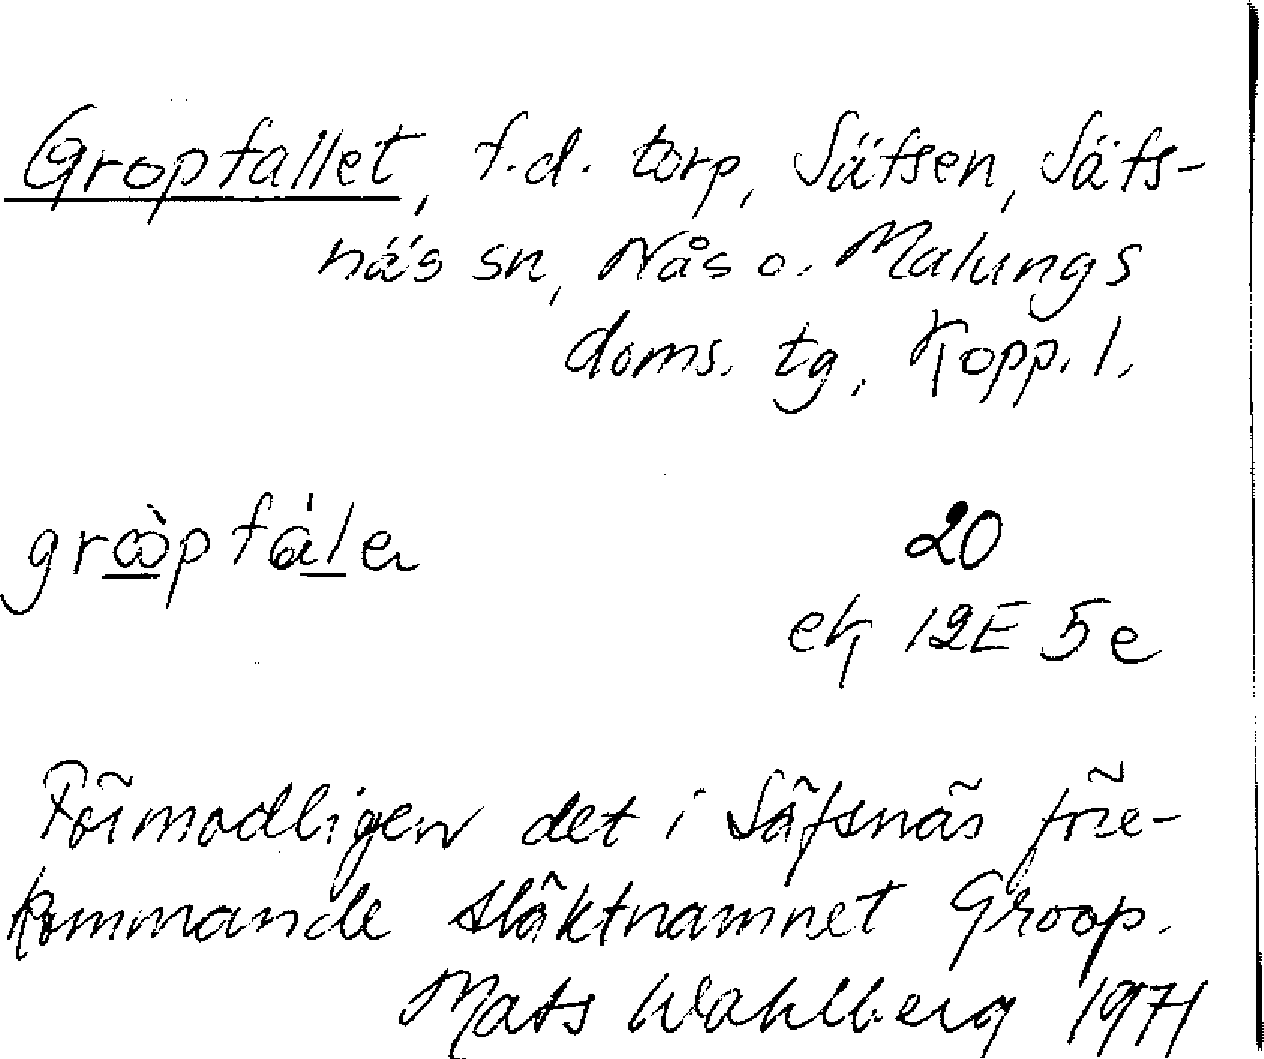 Gropfallet, f.d. torp, Säfsen, Säfs-
näs sn, Nås o. Malungs
doms. tg, Kopp. l.
20
ek 12E 5e
Förmodligen det i Säfsnäs före-
kommande släktnamnet Groop.
Mats Wahlberg 1971